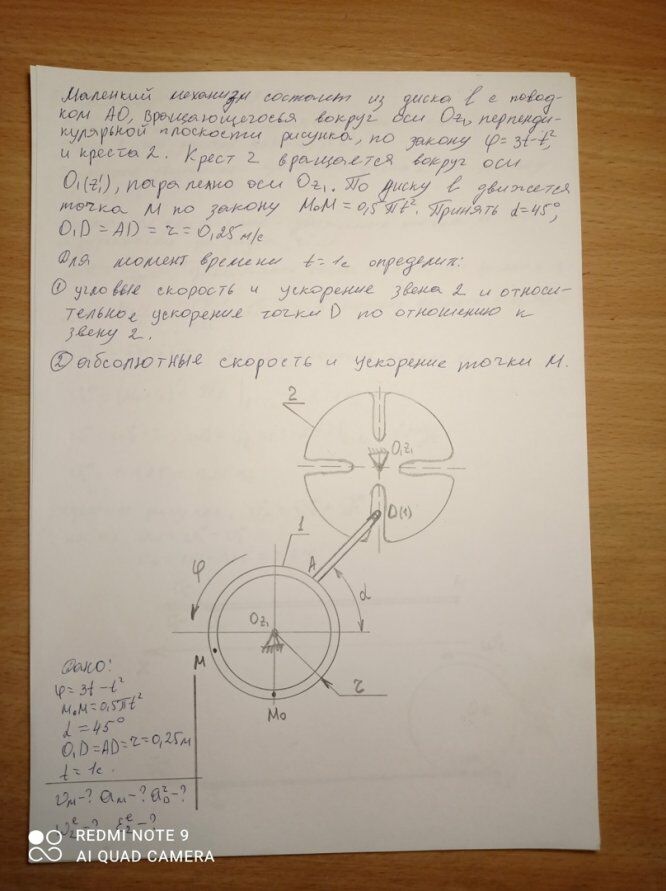 Маленкий механизм состоит из диска в с повод-
ком АО, вращающегося вокруг оси Oz₁, перпенди-
кулярной плоскости рисунка, по закону φ=3t-t²,
и креста 2. Крест 2 вращается вокруг оси
O₁(z'), паралленно оси Oz₁. По диску в движется
точка М по закону M₀M=0,5πt². Принять α=45°,
O₁D=AD=r=0,25м/с
Для момент времени t=1с определить:
① угловые скорость и ускорение звена 2 и относи-
тельное ускорение точки D по отношению к
звену 2.
② абсолютные скорость и ускорение точки М.
2
O₁z₁
D(1)
1
A
φ
α
Oz₁
M
r
M₀
Дано:
φ=3t-t²
M₀M=0,5πt²
α=45°
O₁D=AD=r=0,25м
t=1с.
REDMI NOTE 9
AI QUAD CAMERA